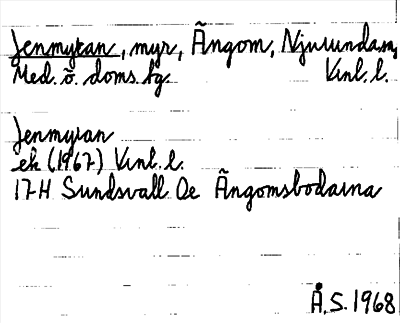 Jenmyran, myr, Ängom, Njurunda sn,
Med. ö. doms. hg. Vnl. l.
Jenmyran
ek (1967) Vnl. l.
17H Sundsvall Oe Ängomsbodarna
Å.S. 1968